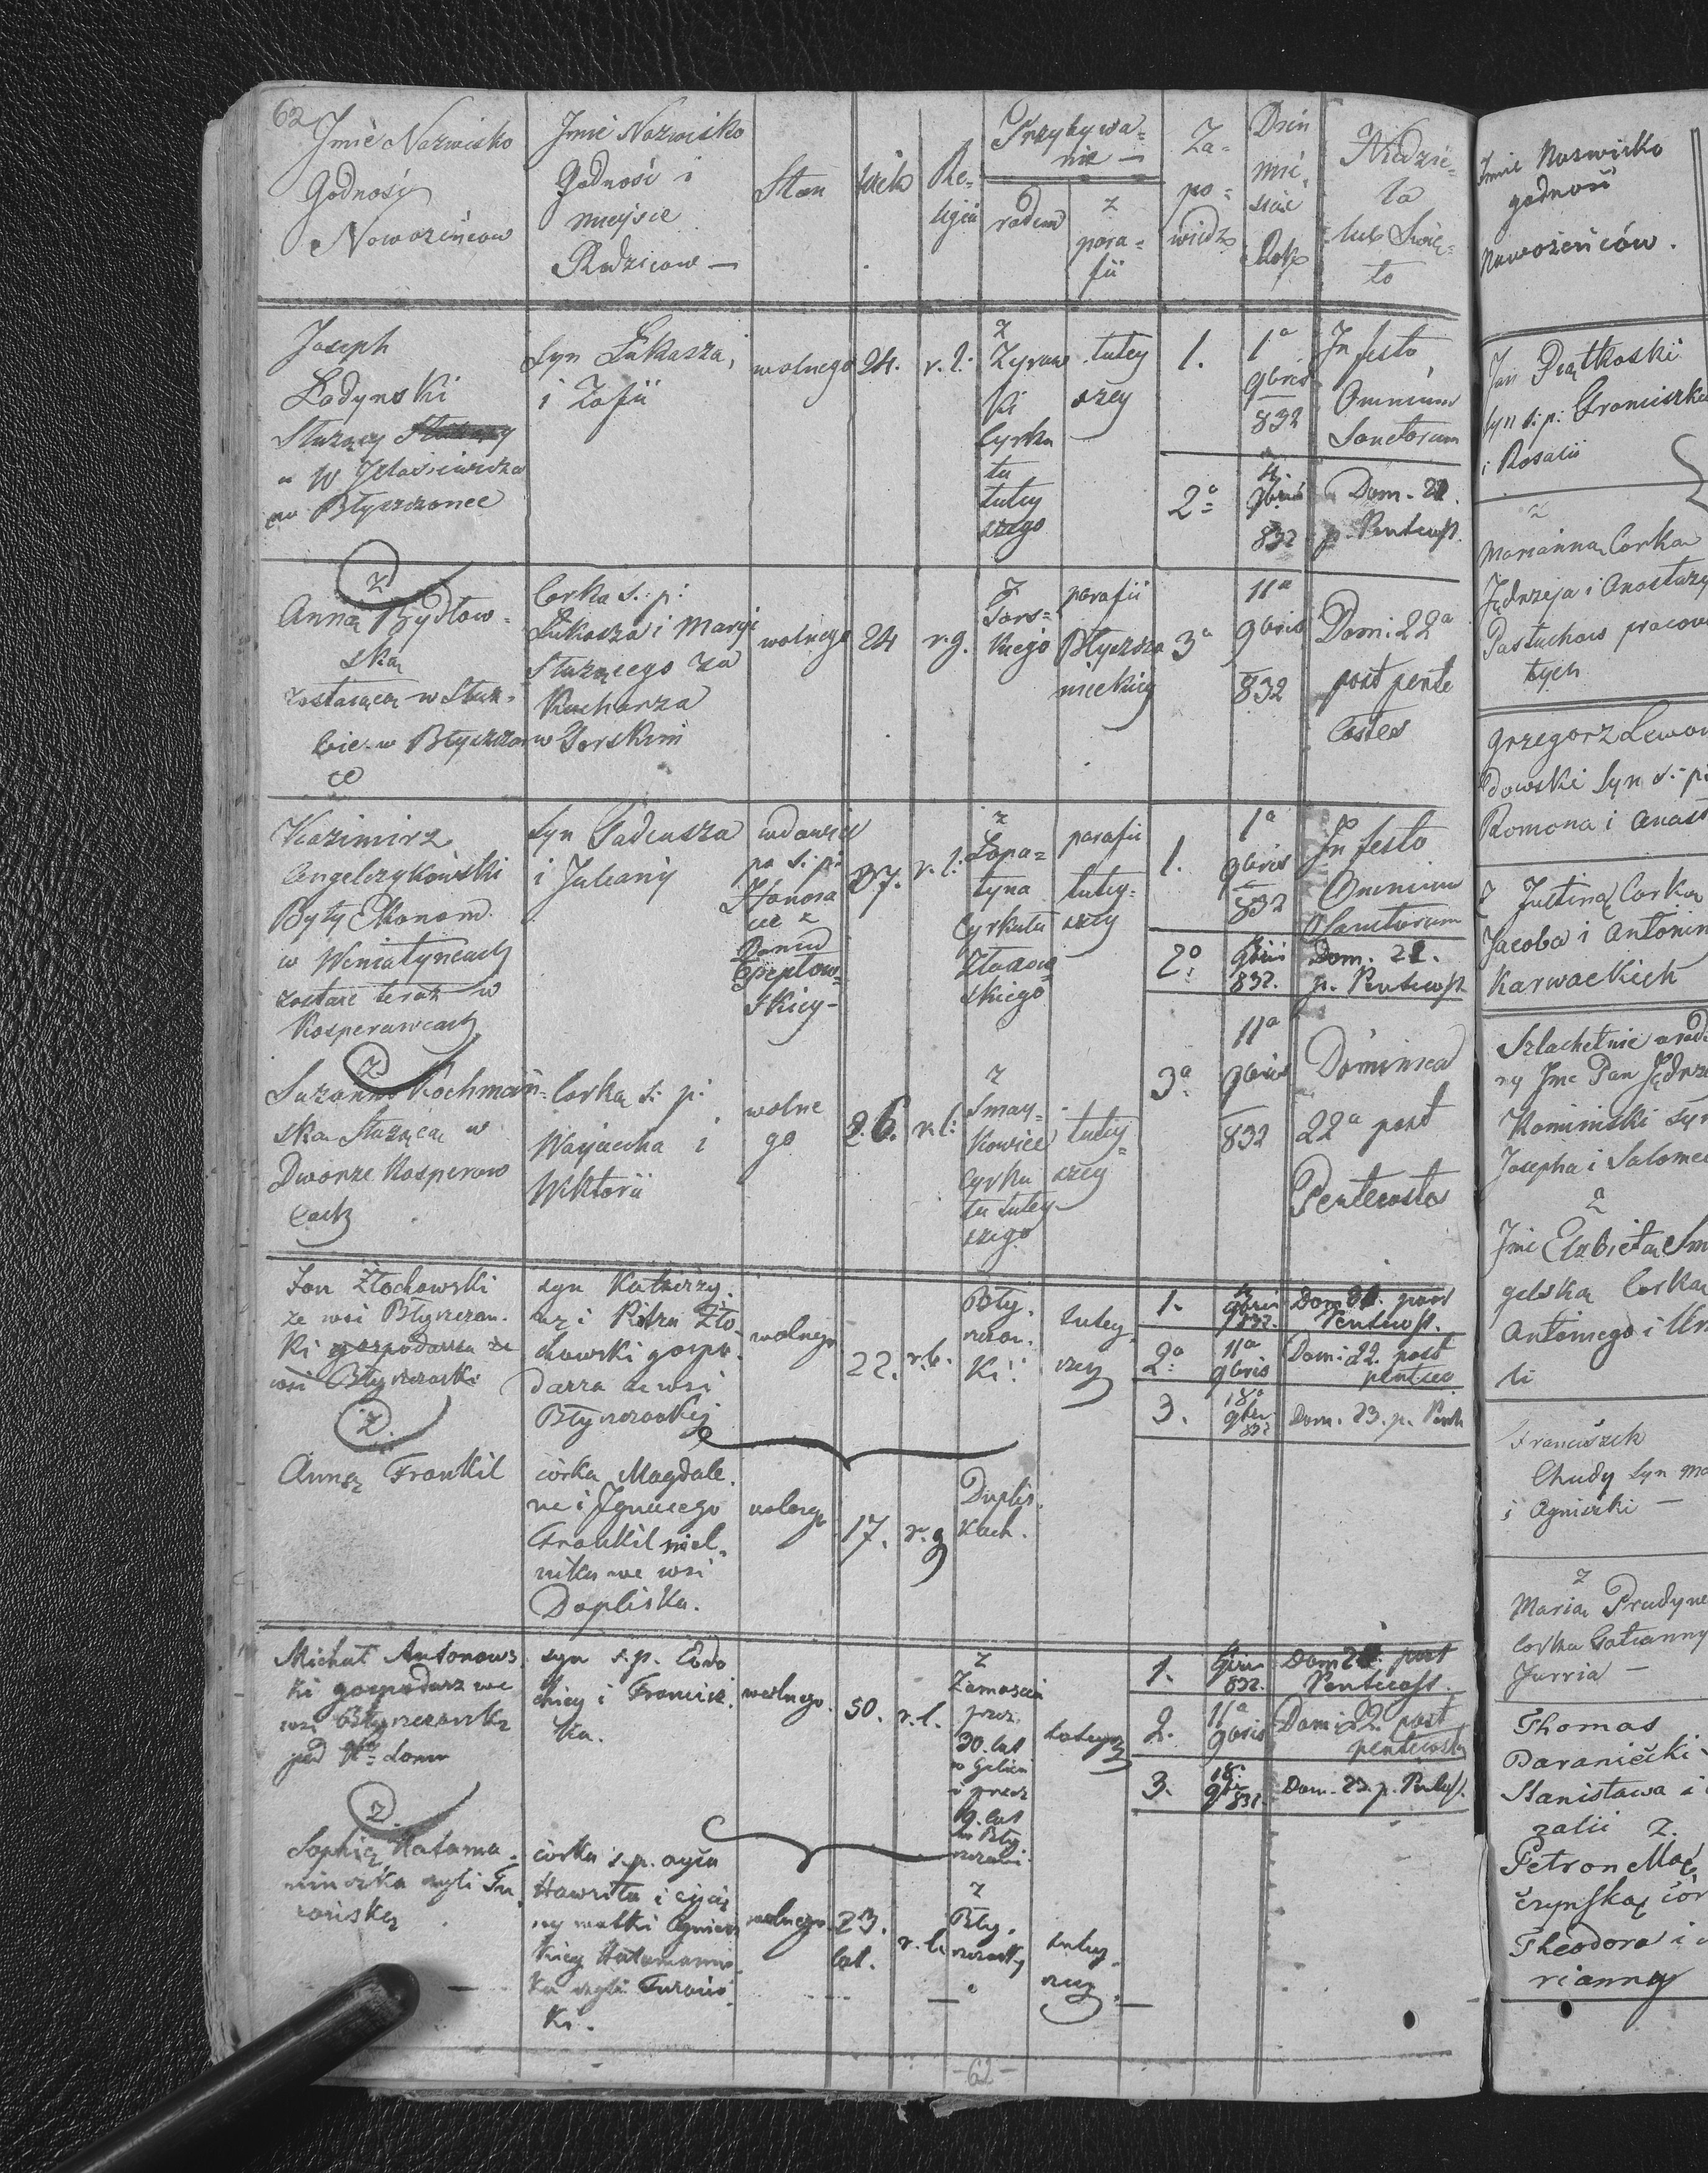 62
Jmie Nazwisko
Godność
Nowożeńcow
Jmie Nazwisko
Godność i
mieysce
Rodzicow —
Stan
wiek
Re-
ligia
Przybywa-
nie —
rodem
z
para-
fii
Za-
po-
wiedz
Dzień
mie-
siąc
Rok
Niedzie-
la
lub Swię-
to
Joseph
Ladynski
Służący
u W
w Błyszczance
Syn Łukasza
i Zofii
wolnego
24.
r. l.
z
Zyraw
ki
Cyrku
łu
tutey
szego
tutey
szey
1.
1a
9bris
832
Jn festo
Omnium
Sanctorum
2a
4
9bris
832
Dom. 21.
p. Pentecost.
z
Anną Bydłow-
ską
zostaiącą w Służ-
bie w Błyszczan
ce
Corka s. p.
Łukasza i Maryi
Służącego za
Kucharza
w Torskim
wolnego
24
r. g.
z
Tors-
kiego
parafii
Błyszcza
nieckiey
3a
11a
9bris
832
Dom. 22a
post pente
costes
Kazimirz
Angelczykowski
Były Ekonom
w Winiatyncach
zostaie teraz w
Kasperowcach
Syn Tadeusza
i Juliany
wdowiec
po s. p.
Honora
cie z
Domu
Cieplow-
skiey -
37.
r. l.
z
Łopa-
tyna
Cyrkułu
Złoczow
skiego
parafii
tutey-
szey
1.
1a
9bris
832
Jn festo
Omnium
Sanctorum
2a
9bris
832.
Dom. 21.
p. Pentecost.
z
Suzanna Kochmań-
ska Służąca w
Dworze Kasperow
cach
Corka s. p.
Woyciecha i
Wiktorii
wolne
go
26.
r. l.
z
Smay-
kowiec
Cyrku
łu tutey-
szego
tutey-
szey
3a
11a
9bris
832
Dominica
22a post
Pentecostes
Jan Złochowski
ze wsi Błyszczan-
ki gospodarza ze
wsi Błyszczanki
syn Katarzy-
ny i Piotra Zło-
chowski gospo-
darza ze wsi
Błyszczankij
wolnego
22.
r. l.
Błysz-
czan-
ki
tutey-
szey
1.
4
9bris
832.
Dom 21. post
Pentecost.
2a
11a
9bris
Dom. 22. post
pentec
3.
18a
9bris
832
Dom. 23. p. Pent.
z
Anną Frankil
córka Magdale-
ne i Jgnacego
Frankil miel-
nika we wsi
Dupliska.
wolnego
17.
r. g
Duplis-
kach.
Michał Antonows-
ki gospodarz we
wsi Błyszczanka
pod Nro domu
syn s. p. Ewdo
chiey i Francisz-
ka.
wolnego.
50.
r. l.
z
Zamościa
przez
30. lat
w Galicii
i przez
19. lat
w Błysz
czanki
tuteysz
1.
9bris
832.
Dom 21. post
Pentecost.
2.
11a
9bris
Dom. 22. post
pentecost
3.
18.
9bris
832.
Dom. 23. p. Pentecost.
z
Sophią Hatama-
ninczka czyli Tu-
rańską
córka s. p. oyca
Hawriła i żyią-
cey matki Agniesz
kiey Hatamanin-
ka czyli Turańs-
ki.
wolnego
23.
lat.
r. l.
z
Błysz-
czanky
tutey-
szey
-62-
Jmie Naswisko
godność
nowożeńców.
Jan Piątkoski
syn s. p. Franciszka
i Rosalii
z
Marianną Corka
Jędrzeja i Anastazy
Pastuchow pracowi
tych
Grzegorz Lewan
dowski Syn s. p.
Romana i Anast
z Justiną Corka
Jacoba i Antonin
Karwackich
Szlachetnie urodz
ny Jmc Pan Jędrze
Kaminski syn
Josepha i Salomei
z
Jmc Elzbieta Sm
gelska Corka
Antoniego i Ur
li
Franciszek
Chudy Syn Ma
i Agnieszki —
z
Maria Prudyne
Corka Tatianny
Jurria —
Thomas
Baraniecki
Stanisława i
zalii z.
Petronellą
czynską cór
Theodora i
rianny